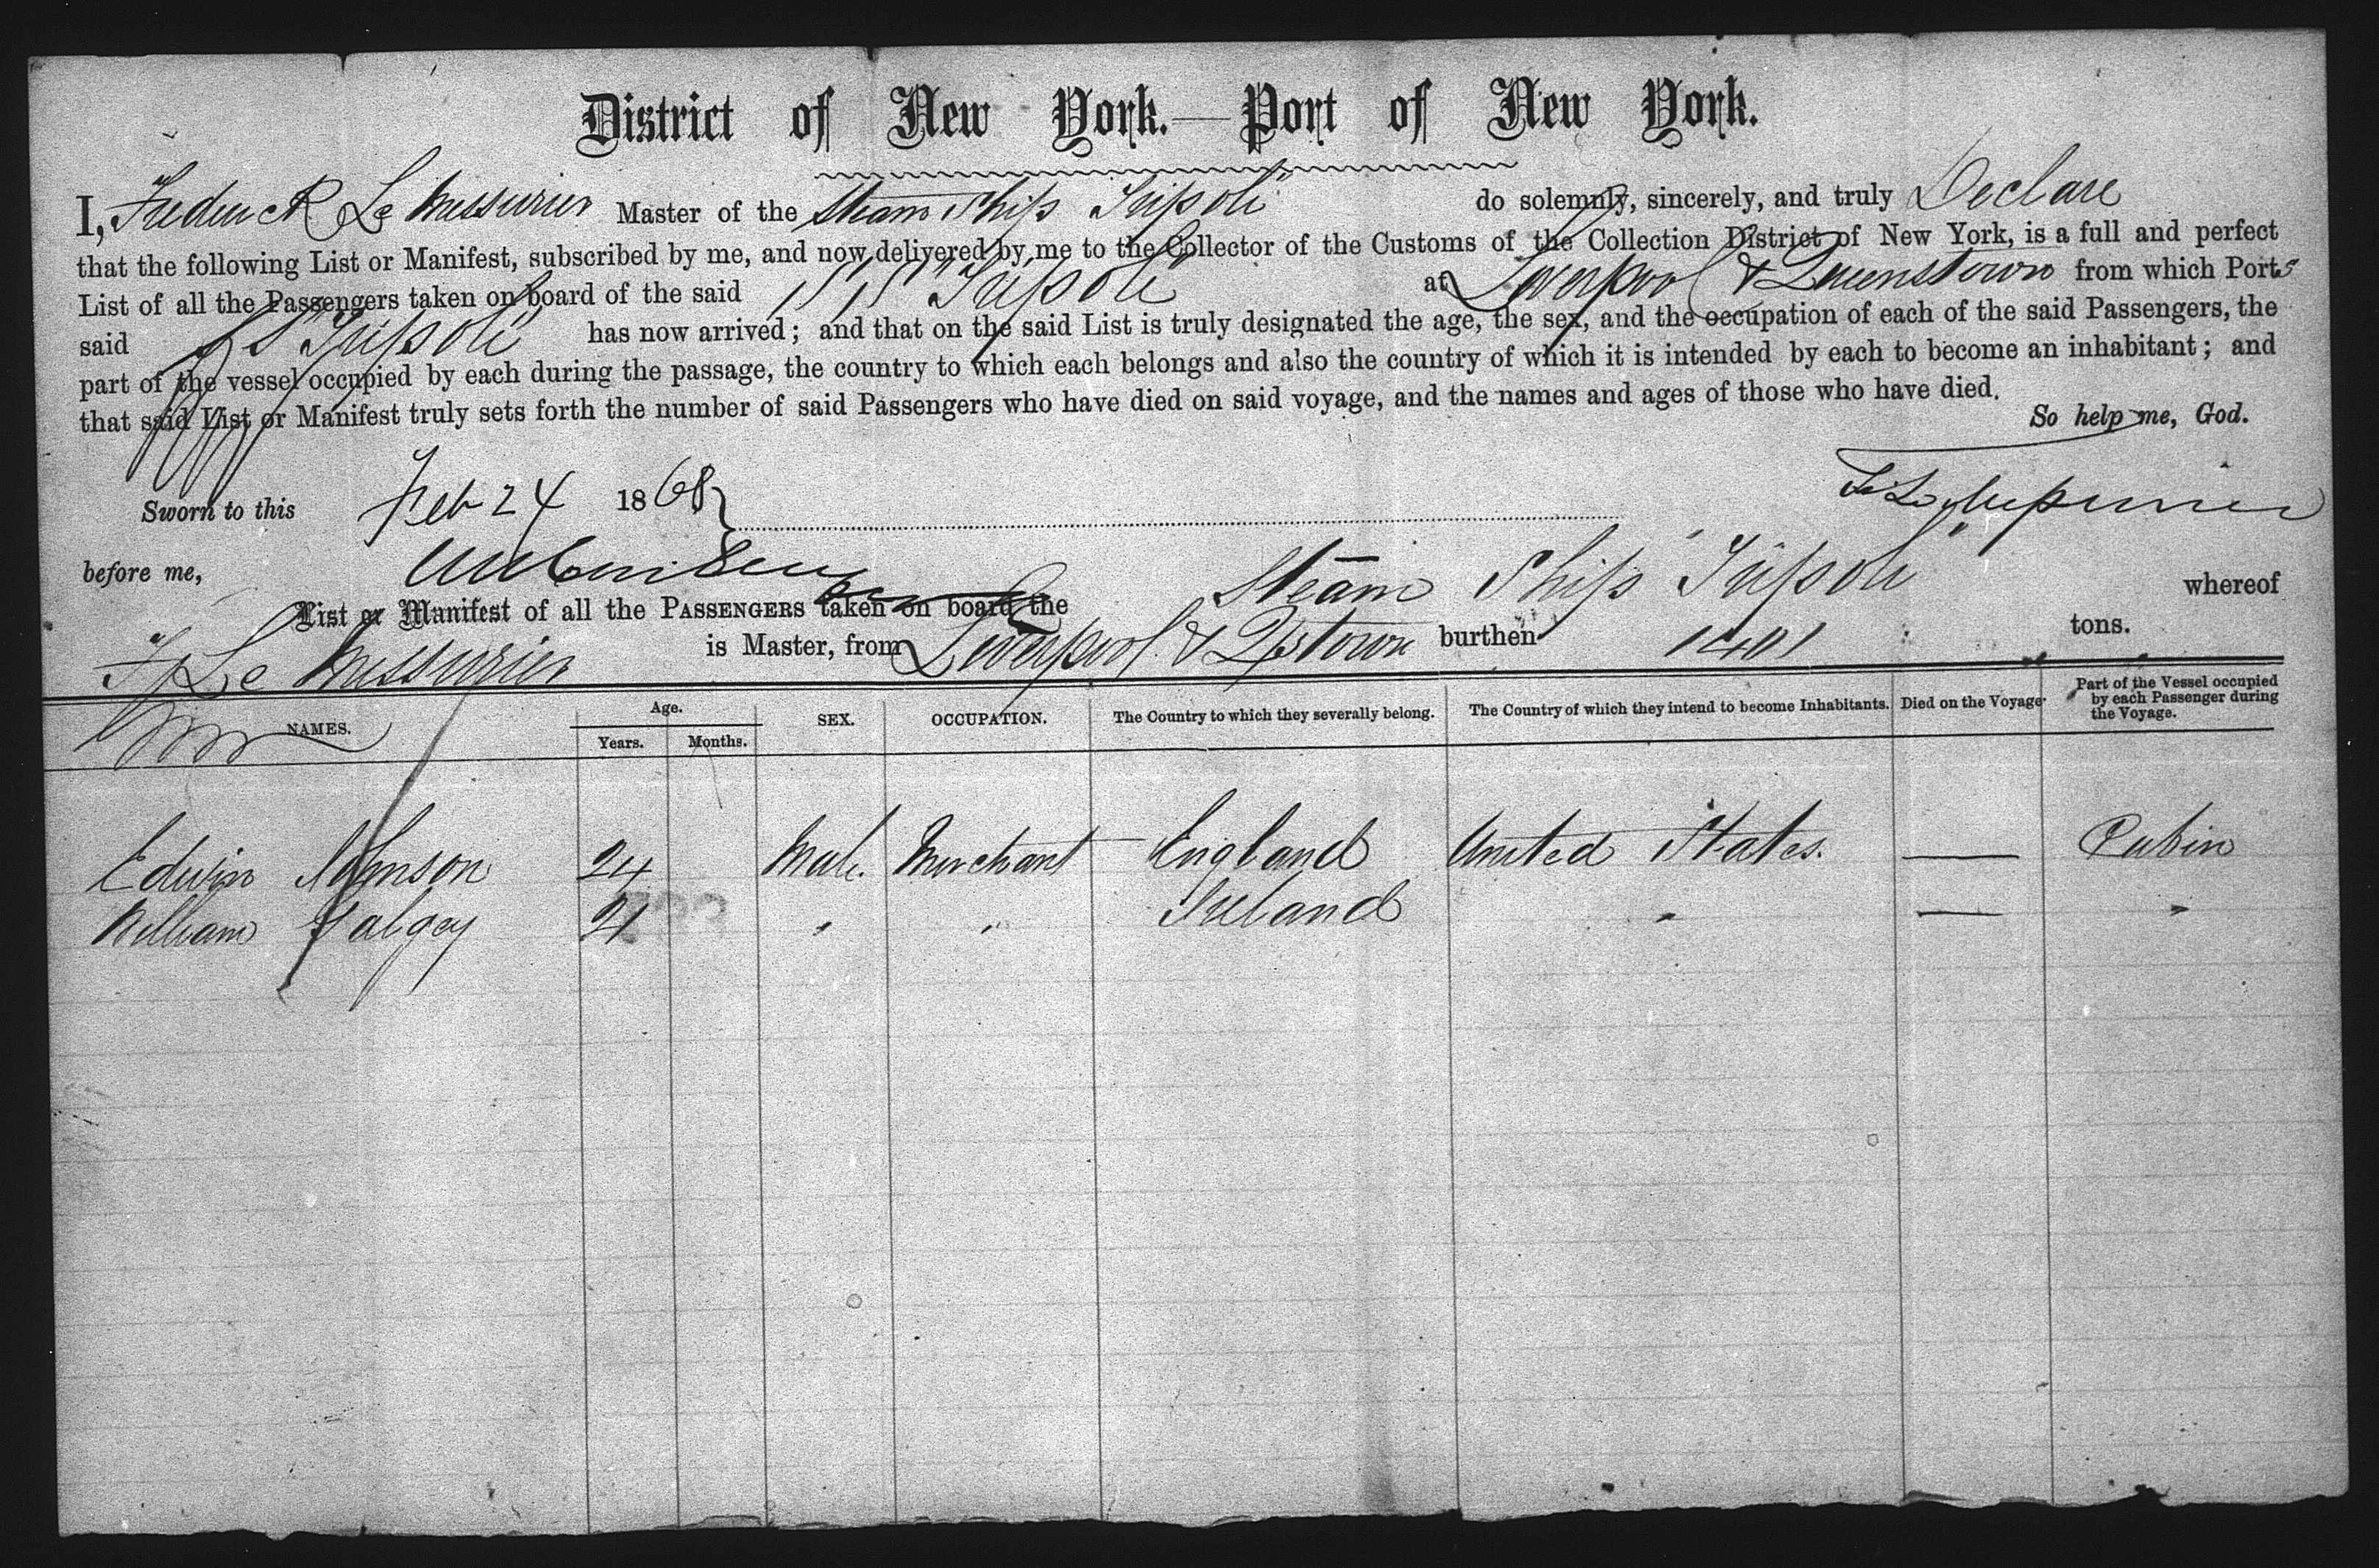 District of New York.—Port of New York.
I, Frederick Le Messurier Master of the Steam Ship Tripoli do solemnly, sincerely, and truly Declare
that the following List or Manifest, subscribed by me, and now delivered by me to the Collector of the Customs of the Collection District of New York, is a full and perfect
List of all the Passengers taken on board of the said SS "Tripoli" at Liverpool & Queenstown from which Ports
said SS "Tripoli" has now arrived; and that on the said List is truly designated the age, the sex, and the occupation of each of the said Passengers, the
part of the vessel occupied by each during the passage, the country to which each belongs and also the country of which it is intended by each to become an inhabitant; and
that said List or Manifest truly sets forth the number of said Passengers who have died on said voyage, and the names and ages of those who have died.
So help me, God.
Sworn to this Feb 24 1868 F Le Messurier
before me,
List or Manifest of all the PASSENGERS taken on board the Steam Ship "Tripoli" whereof
F Le Messurier is Master, from Liverpool & Qstown burthen 1401 tons.
NAMES. Age. Years. Months. SEX. OCCUPATION. The Country to which they severally belong. The Country of which they intend to become Inhabitants. Died on the Voyage. Part of the Vessel occupied by each Passenger during the Voyage.
Edwin Johnson 24 Male. Merchant England United States. — Cabin
William Galgey 21 " " Ireland " — "